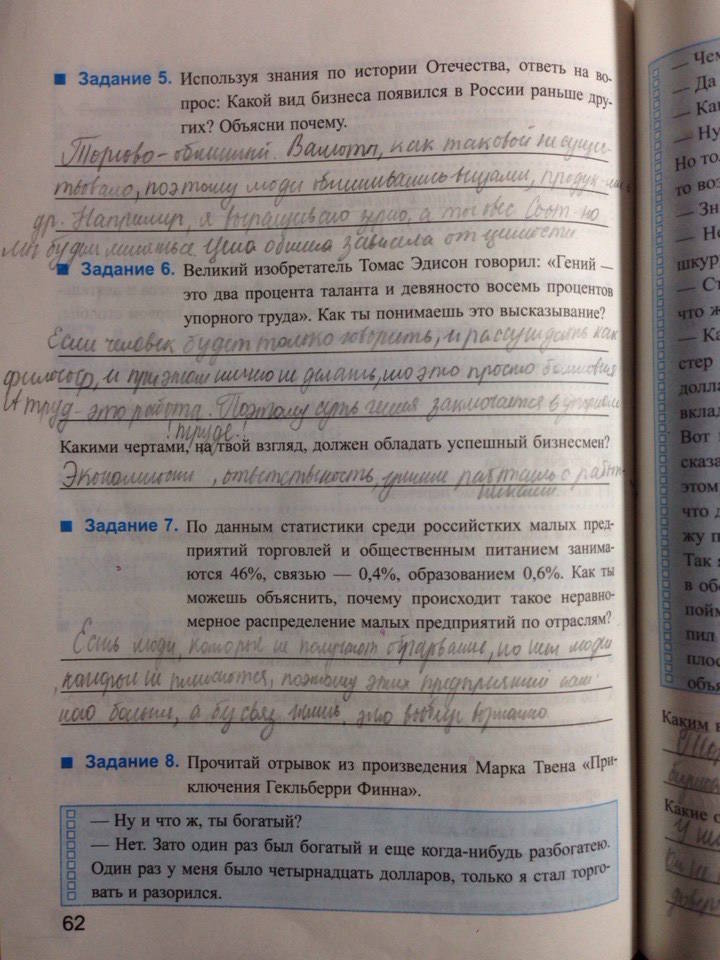 ■ Задание 5. Используя знания по истории Отечества, ответь на во-
прос: Какой вид бизнеса появился в России раньше дру-
гих? Объясни почему.
Торгово-обменный. Валюты, как таковой не сущес-
твовало, поэтому люди обменивались вещами,
др. Например, я выращиваю зерно, а ты овес
мы будем меняться. Цена обмена зависела от ценности
■ Задание 6. Великий изобретатель Томас Эдисон говорил: «Гений —
это два процента таланта и девяносто восемь процентов
упорного труда». Как ты понимаешь это высказывание?
Если человек будет только говорить, и рассуждать как
философ, и при этом ничего не делать, то это просто болтовня
А труд - это работа. Поэтому суть гения заключается в упорном
труде!
Какими чертами, на твой взгляд, должен обладать успешный бизнесмен?
ответственность, умение работать с
■ Задание 7. По данным статистики среди российстких малых пред-
приятий торговлей и общественным питанием занима-
ются 46%, связью — 0,4%, образованием 0,6%. Как ты
можешь объяснить, почему происходит такое неравно-
мерное распределение малых предприятий по отраслям?
Есть люди, которые не получают образование, но нет людей
которые не питаются, поэтому этих предприятий
больше, а без связи жить, это вообще
■ Задание 8. Прочитай отрывок из произведения Марка Твена «При-
ключения Гекльберри Финна».
— Ну и что ж, ты богатый?
— Нет. Зато один раз был богатый и еще когда-нибудь разбогатею.
Один раз у меня было четырнадцать долларов, только я стал торго-
вать и разорился.
62
— Чем
— Да
— Ка
— Ну
Но то
то воз
— Зн
— Не
шкур
— Ст
что ж
— Ка
стер
долла
вклад
Вот
сказа
этом
что д
жу п
Так
в об
пойм
пил
плос
объя
Каким в
Какие с